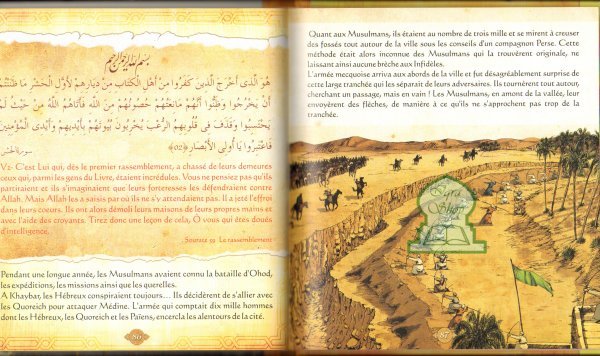 بسم الله الرحمن الرحيم
هُوَ الَّذِى أَخْرَجَ الَّذِينَ كَفَرُوا مِنْ أَهْلِ الْكِتَابِ مِنْ دِيَارِهِمْ لِأَوَّلِ الْحَشْرِ مَا ظَنَنْتُمْ
أَنْ يَخْرُجُوا وَظَنُّوا أَنَّهُمْ مَانِعَتُهُمْ حُصُونُهُمْ مِنَ اللَّهِ فَأَتَاهُمُ اللَّهُ مِنْ حَيْثُ لَمْ
يَحْتَسِبُوا وَقَذَفَ فِى قُلُوبِهِمُ الرُّعْبَ يُخْرِبُونَ بُيُوتَهُمْ بِأَيْدِيهِمْ وَأَيْدِى الْمُؤْمِنِينَ
فَاعْتَبِرُوا يَا أُولِى الْأَبْصَارِ ﴿٠٢﴾
سورة الحشر
V2- C'est Lui qui, dès le premier rassemblement, a chassé de leurs demeures
ceux qui, parmi les gens du Livre, étaient incrédules. Vous ne pensiez pas qu'ils
partiraient et ils s'imaginaient que leurs forteresses les défendraient contre
Allah. Mais Allah les a saisis par où ils ne s'y attendaient pas. Il a jeté l'effroi
dans leurs cœurs. Ils ont alors démoli leurs maisons de leurs propres mains et
avec l'aide des croyants. Tirez donc une leçon de cela, Ô vous qui êtes doués
d'intelligence.
Sourate 59 Le rassemblement
Pendant une longue année, les Musulmans avaient connu la bataille d'Ohod,
les expéditions, les missions ainsi que les querelles.
A Khaybar, les Hébreux conspiraient toujours... Ils décidèrent de s'allier avec
les Quoreich pour attaquer Médine. L'armée qui comptait dix mille hommes
dont les Hébreux, les Quoreich et les Païens, encercla les alentours de la cité.
86
Quant aux Musulmans, ils étaient au nombre de trois mille et se mirent à creuser
des fossés tout autour de la ville sous les conseils d'un compagnon Perse. Cette
méthode était alors inconnue des Musulmans qui la trouvèrent originale, ne
laissant ainsi aucune brèche aux Infidèles.
L'armée mecquoise arriva aux abords de la ville et fut désagréablement surprise de
cette large tranchée qui les séparait de leurs adversaires. Ils tournèrent tout autour,
cherchant un passage, mais en vain ! Les Musulmans, en amont de la vallée, leur
envoyèrent des flèches, de manière à ce qu'ils ne s'approchent pas trop de la
tranchée.
Shop
87